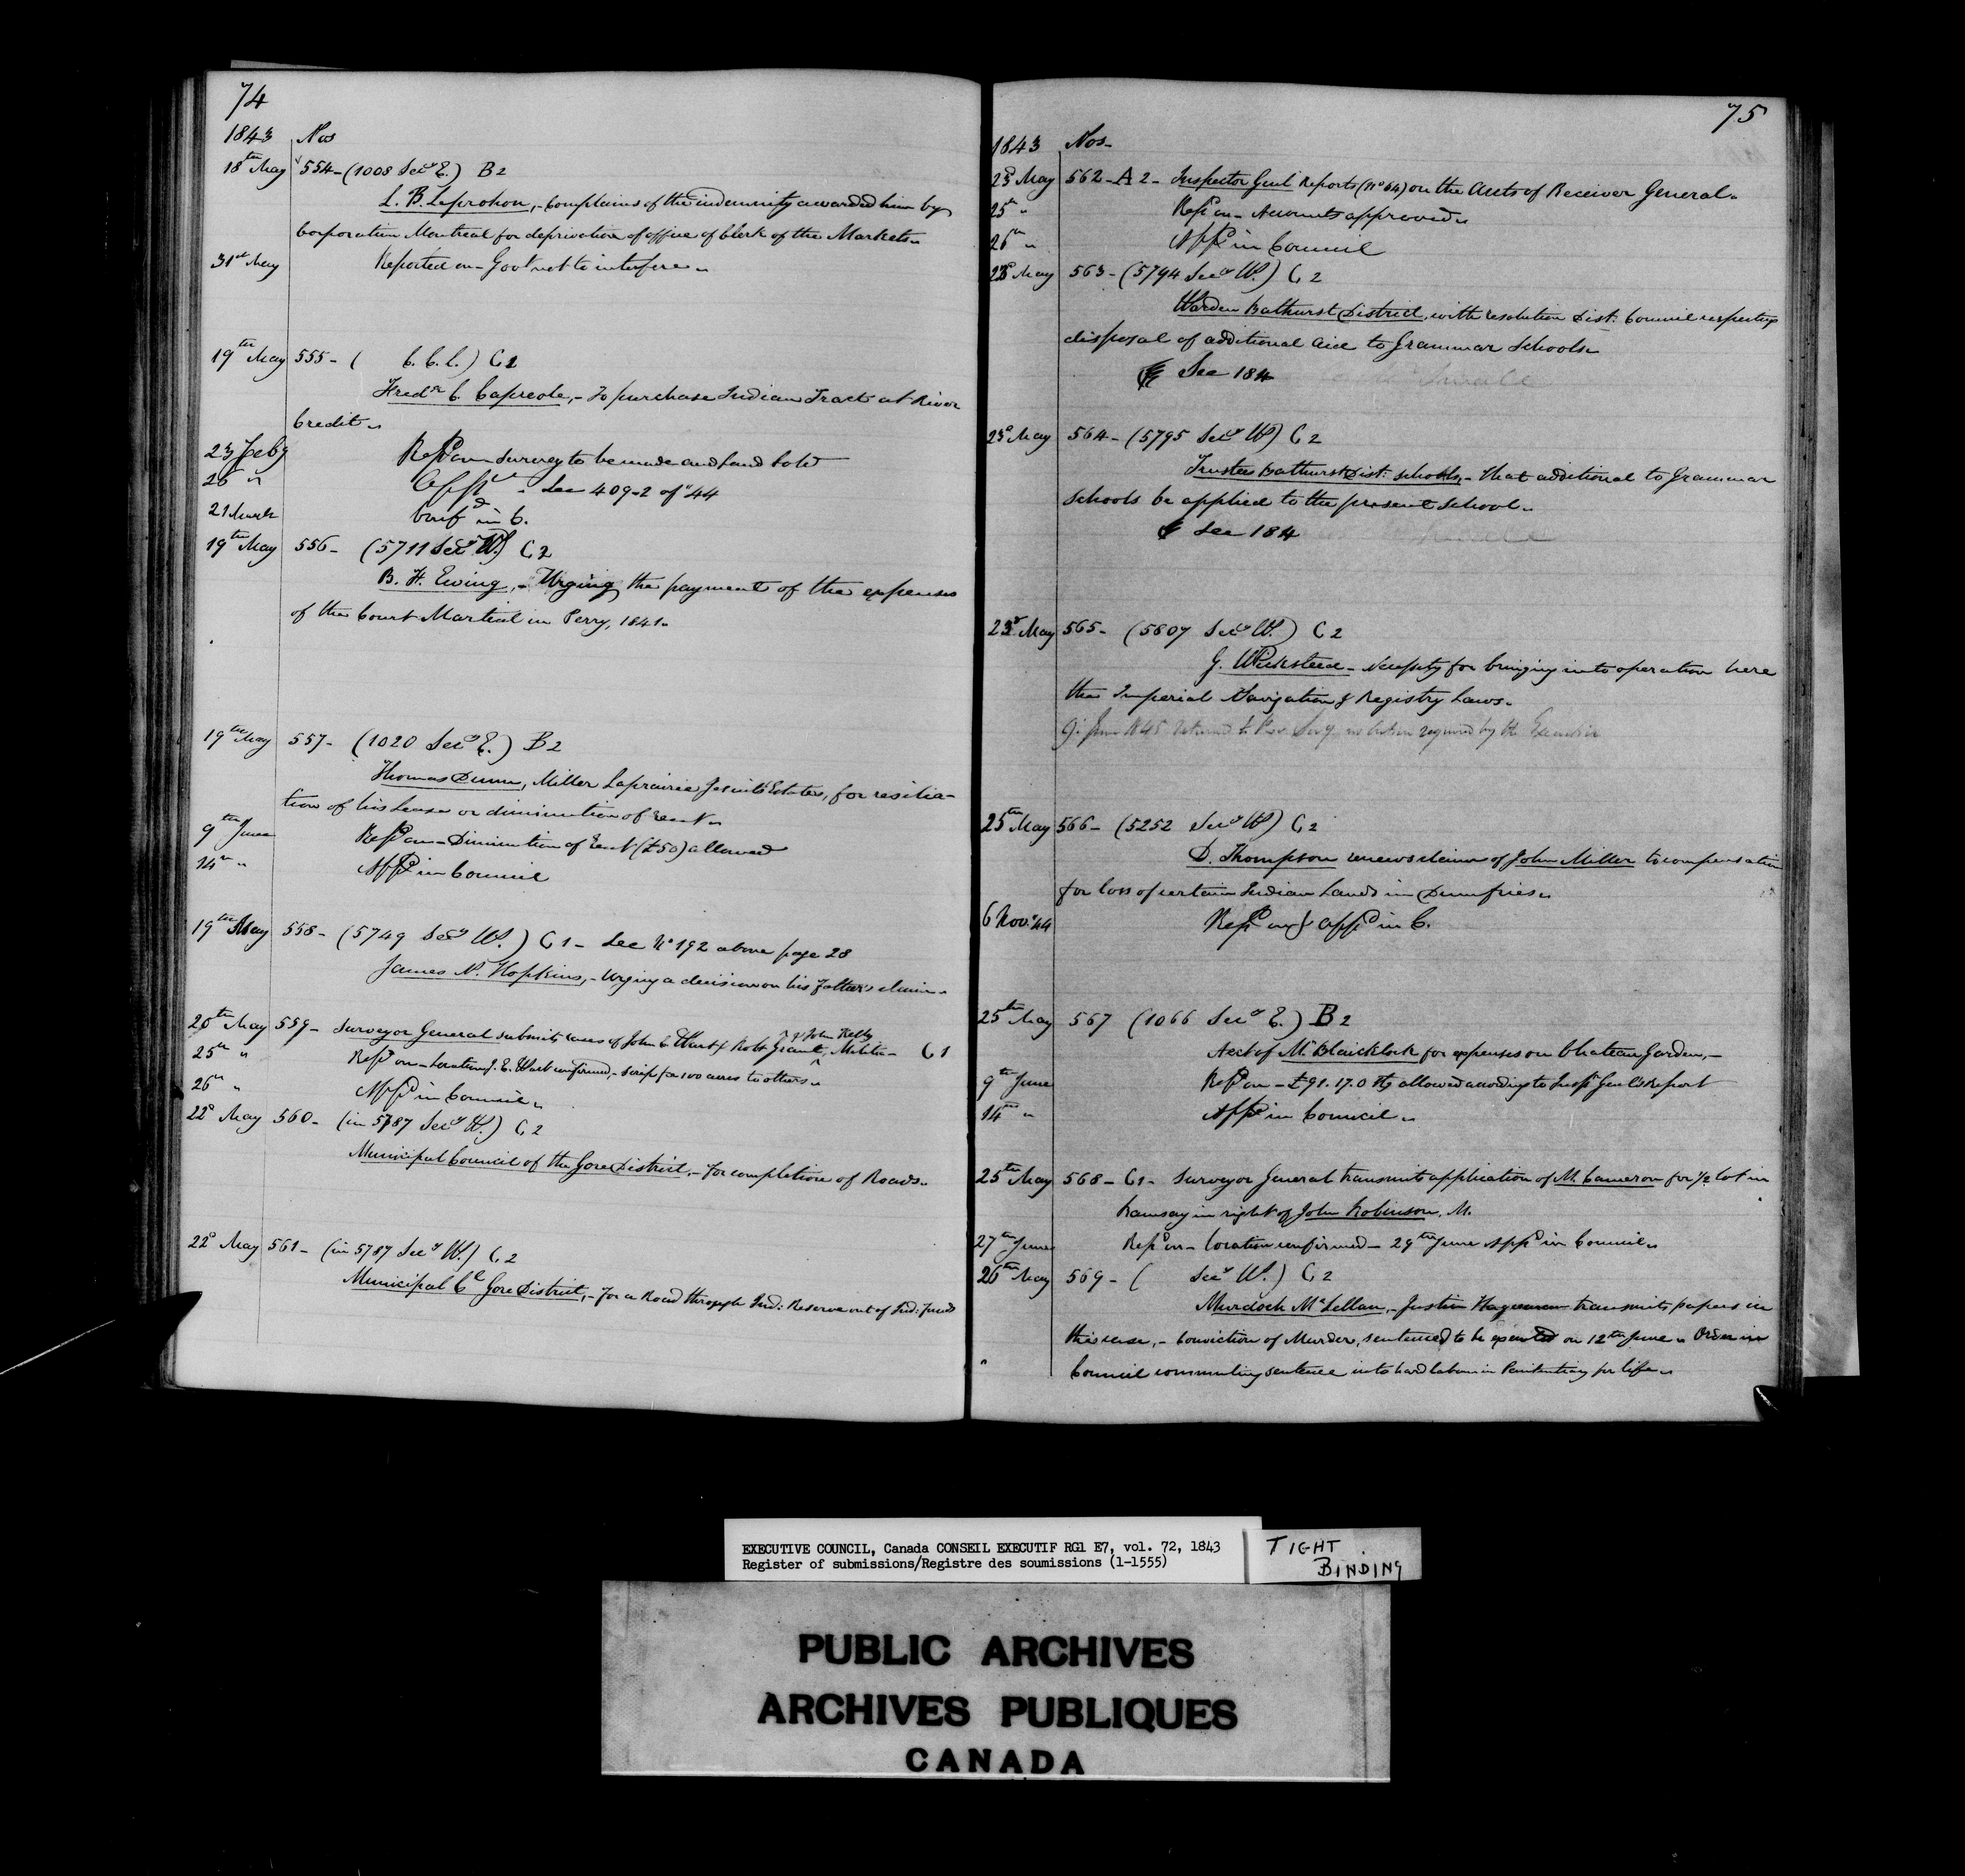 74
1843 Nos
18th May 554 - (1008 Secy E.) B2
L. B. Leprohon, - Complains of the indemnity awarded him by
Corporation Montreal for deprivation of office of Clerk of the Markets
31st May Reported on - Govt not to interfere
19th May 555 - ( C. C. L.) C2
Fredk C. Capreole, - To purchase Indian Tract at River
Credit
23 Feby Repd on Survey to be made and Land Sold
26 " Appd - See 409-2 of "44
21 March Conf d in C.
19th May 556 - (5711 Secy W.) C2
B. H. Ewing, - Urging the payment of the expenses
of the Court Martial in Perry, 1841.
19th May 557 - (1020 Secy E.) B2
Thomas Dunn, Miller Laprairie Jesuits Estates, for resilia-
tion of his Lease or diminution of rent
9th June Repd on - Diminution of rent (£50) allowed
14th " Appd in Council
19th May 558 - (5749 Secy W.) C1 - See No 192 above page 28
James N. Hopkins, - Urging a decision on his Father's claim
20th May 559 - Surveyor General submits cases of John E. Wart & Robt Grant, & John Kelly Militia - C1
25th " Repd on - Location J. E. Wart confirmed, - Scrip for 100 acres to others
26th " Appd in Council
22d May 560 - (in 5787 Secy W.) C2
Municipal Council of the Gore District, - For completion of Roads
22d May 561 - (in 5787 Secy W.) C2
Municipal Cl Gore District, - For a Road through Ind: Reserve out of Ind: funds
75
1843 Nos -
23d May 562 - A 2 - Inspector Genl Reports (No 64) on the Accts of Receiver General
25th " Repd on - Accounts approved
26th " Appd in Council
23d May 563 - (5794 Secy W.) C2
Warden Bathurst District, with resolution Dist: Council respecting
disposal of additional aid to Grammar Schools
See 184
23d May 564 - (5795 Secy W) C2
Trustees Bathurst Dist: Schools, - that additional to Grammar
Schools be applied to the present School
See 184
23d May 565 - (5807 Secy W.) C2
G. Wicksteed - Necessity for bringing into operation here
the Imperial Navigation & Registry Laws.
9: June 1845 returned to Prov. Secy no action required by the Executive
25th May 566 - (5252 Secy W) C2
D. Thompson renews claim of John Miller to compensation
for loss of certain Indian Lands in Dumfries
6 Novr 44 Repd on & appd in C.
25th May 567 (1066 Secy E.) B2
Acct of Mr Blaicklock for expenses on Chateau Garden, -
9th June Repd on - £91.17.0 Hy allowed according to Inspr Genl's Report
14th " Appd in Council
25th May 568 - C1 - Surveyor General transmits application of M. Cameron for ½ lot in
Ramsay in right of John Robinson, M.
27th June Repd on - Location confirmed - 29th June Appd in Council
26th May 569 - ( Secy W.) C2
Murdoch McLellan, - Justice Hagerman transmits papers in
this case, - Conviction of Murder, sentenced to be executed on 12th June " Order in
Council commuting sentence into hard labour in Penitentiary for life
EXECUTIVE COUNCIL, Canada CONSEIL EXECUTIF RG1 E7, vol. 72, 1843
Register of submissions/Registre des soumissions (1-1555)
TIGHT
BINDING
PUBLIC ARCHIVES
ARCHIVES PUBLIQUES
CANADA